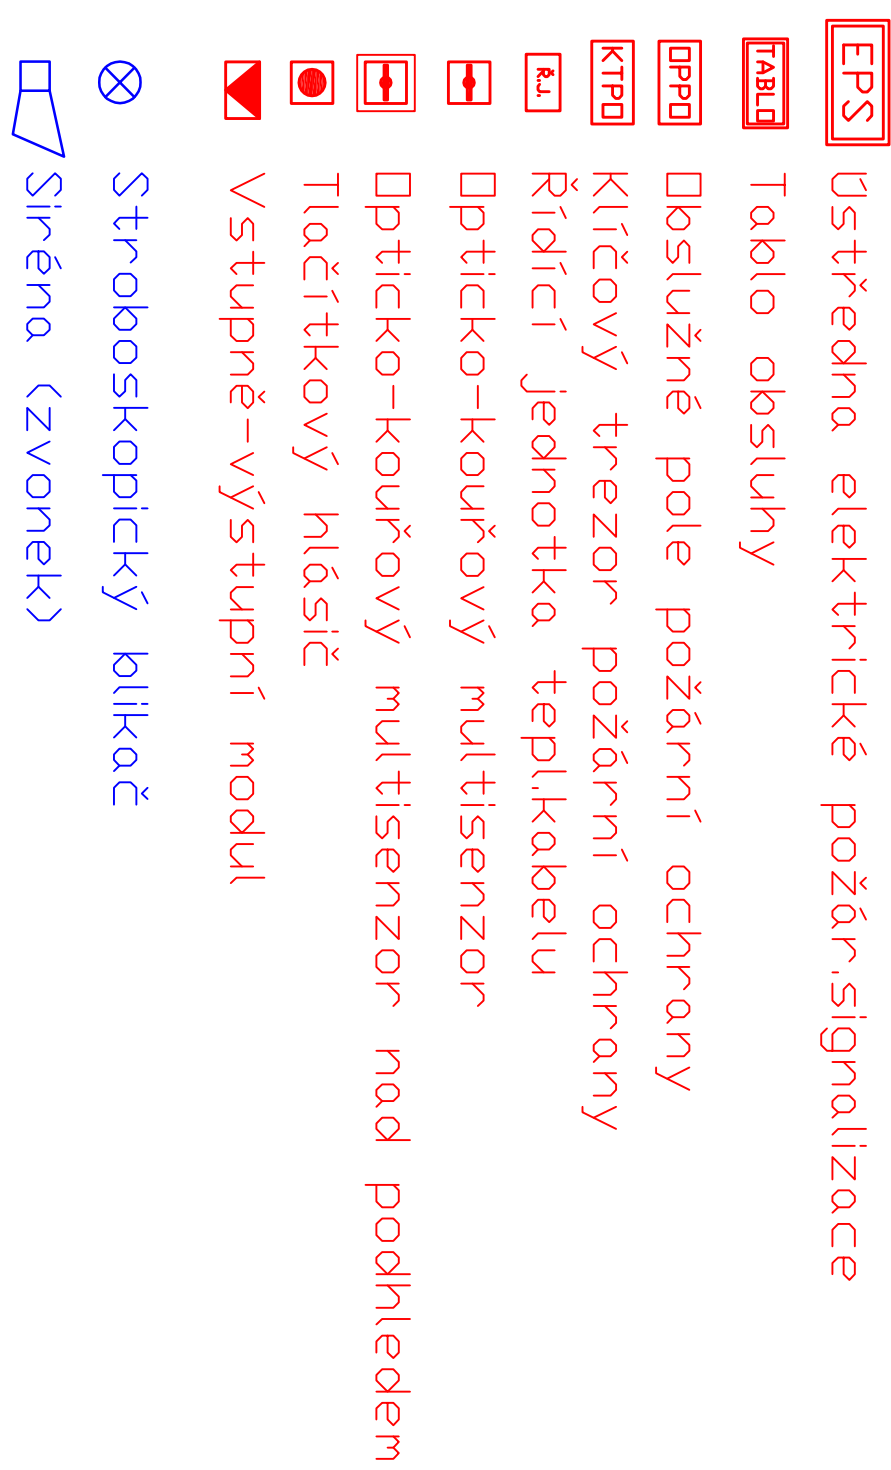 EPS Ústředna elektrické požár.signalizace
TABLO Tablo obsluhy
OPPO Obslužné pole požární ochrany
KTPO Klíčový trezor požární ochrany
Ř.J. Řídící jednotka tepl.kabelu
Opticko-kouřový multisenzor
Opticko-kouřový multisenzor nad podhledem
Tlačítkový hlásič
Vstupně-výstupní modul
Stroboskopický blikač
Siréna (zvonek)